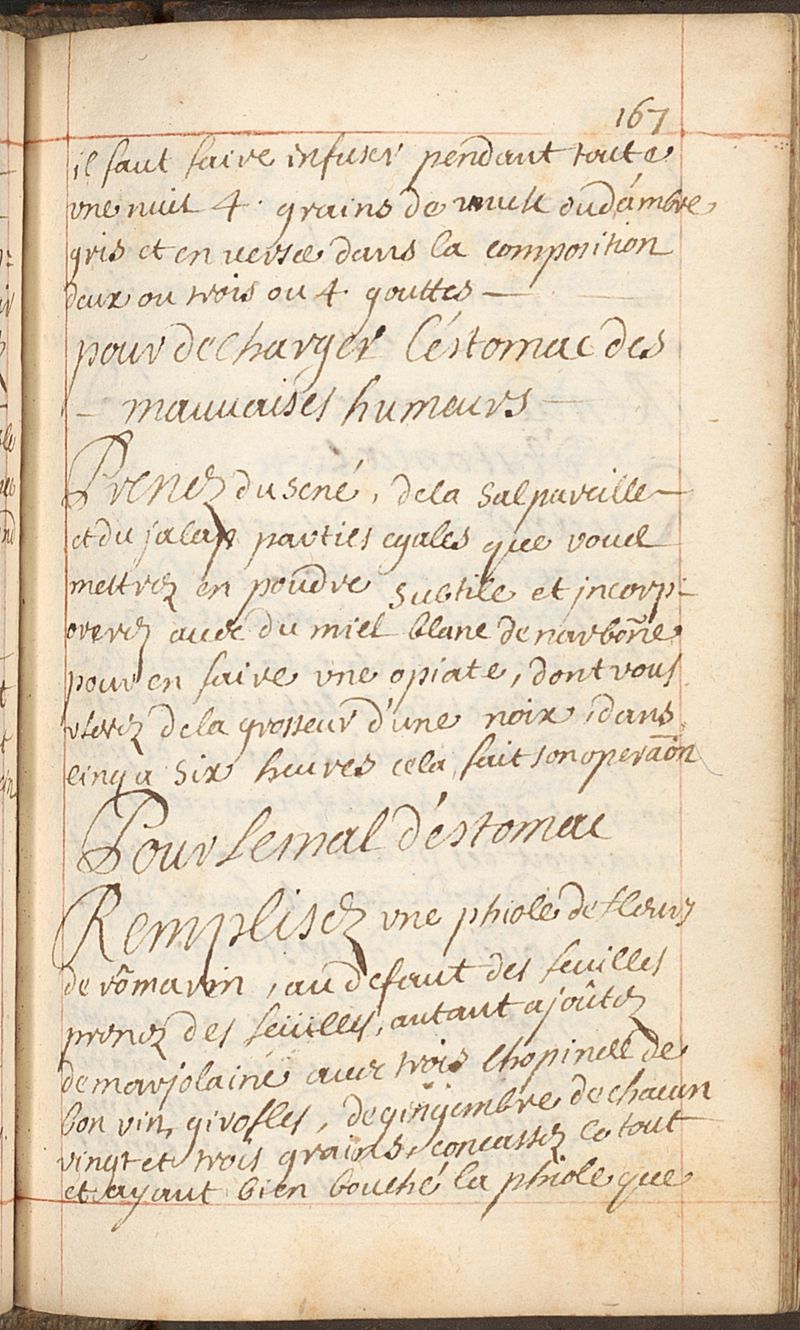 167
il faut faire infuser pendant toute
une nuit 4. grains de musc ou d'ambre
gris et en verser dans la composition
deux ou trois ou 4. gouttes —
pour decharger l'éstomac des
— mauvaises humeurs —
Prenez du sené, de la salpareille —
et du jalap parties egales que vous
mettrez en poudre subtile et jncorp-
orerez avec du miel blanc de narbon̄e
pour en faire une opiate, dont vous
userez de la grosseur d'une noix, dans
cinq a six heures cela fait son opera͞on
Pour le mal d'éstomac
Remplisez une phiole de fleurs
de rômarin, au defaut des feuilles
prenez des feüilles, autant ajoûtez
de marjolaine avec trois chopines de
bon vin, girofles, de gingembre de chacun
vingt et trois grains, concassez le tout
et ayant bien bouché la phiole que